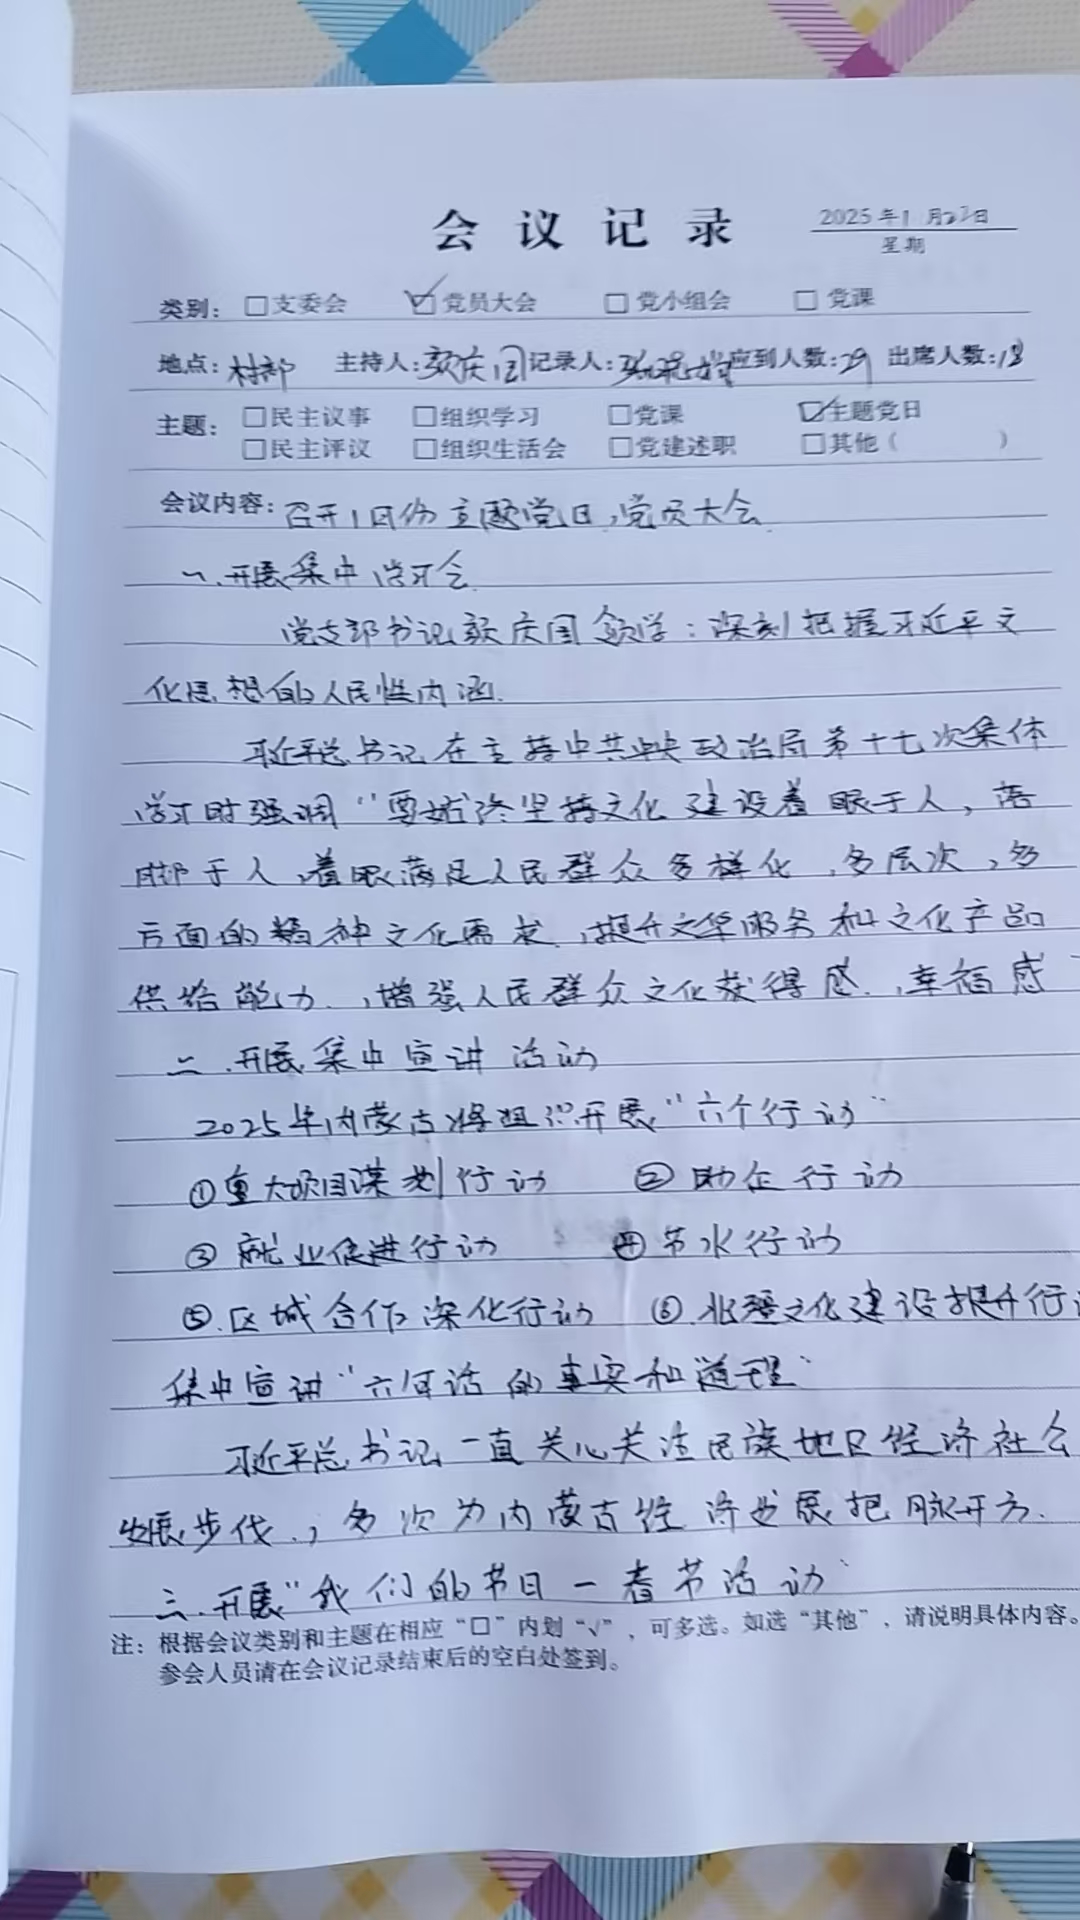 会议记录
2025年1月22日
星期
类别: □支委会 ☑党员大会 □党小组会 □党课
地点:村部 主持人:庆国 记录人: 应到人数:29 出席人数:18
主题: □民主议事 □组织学习 □党课 ☑主题党日
□民主评议 □组织生活会 □党建述职 □其他( )
会议内容:召开1月份主题党日,党员大会
一.开展集中学习会.
党支部书记庆国领学:深刻把握习近平文
化思想的人民性内涵.
习近平总书记在主持中共中央政治局第十七次集体
学习时强调"要始终坚持文化建设着眼于人,落
脚于人,着眼满足人民群众多样化,多层次,多
方面的精神文化需求,提升文华服务和文化产品
供给能力.,增强人民群众文化获得感.,幸福感
二.开展集中宣讲活动
2025年内蒙古将组织开展"六个行动"
①重大项目谋划行动 ②助企行动
③就业促进行动 ④节水行动
⑤.区域合作深化行动 ⑥.北疆文化建设提升行
集中宣讲"六句话的事实和道理"
习近平总书记一直关心关注民族地区经济社会
发展步伐.,多次为内蒙古经济发展把脉开方.
三.开展"我们的节日一春节活动"
注: 根据会议类别和主题在相应“□”内划“√”,可多选。如选“其他”,请说明具体内容。
参会人员请在会议记录结束后的空白处签到。